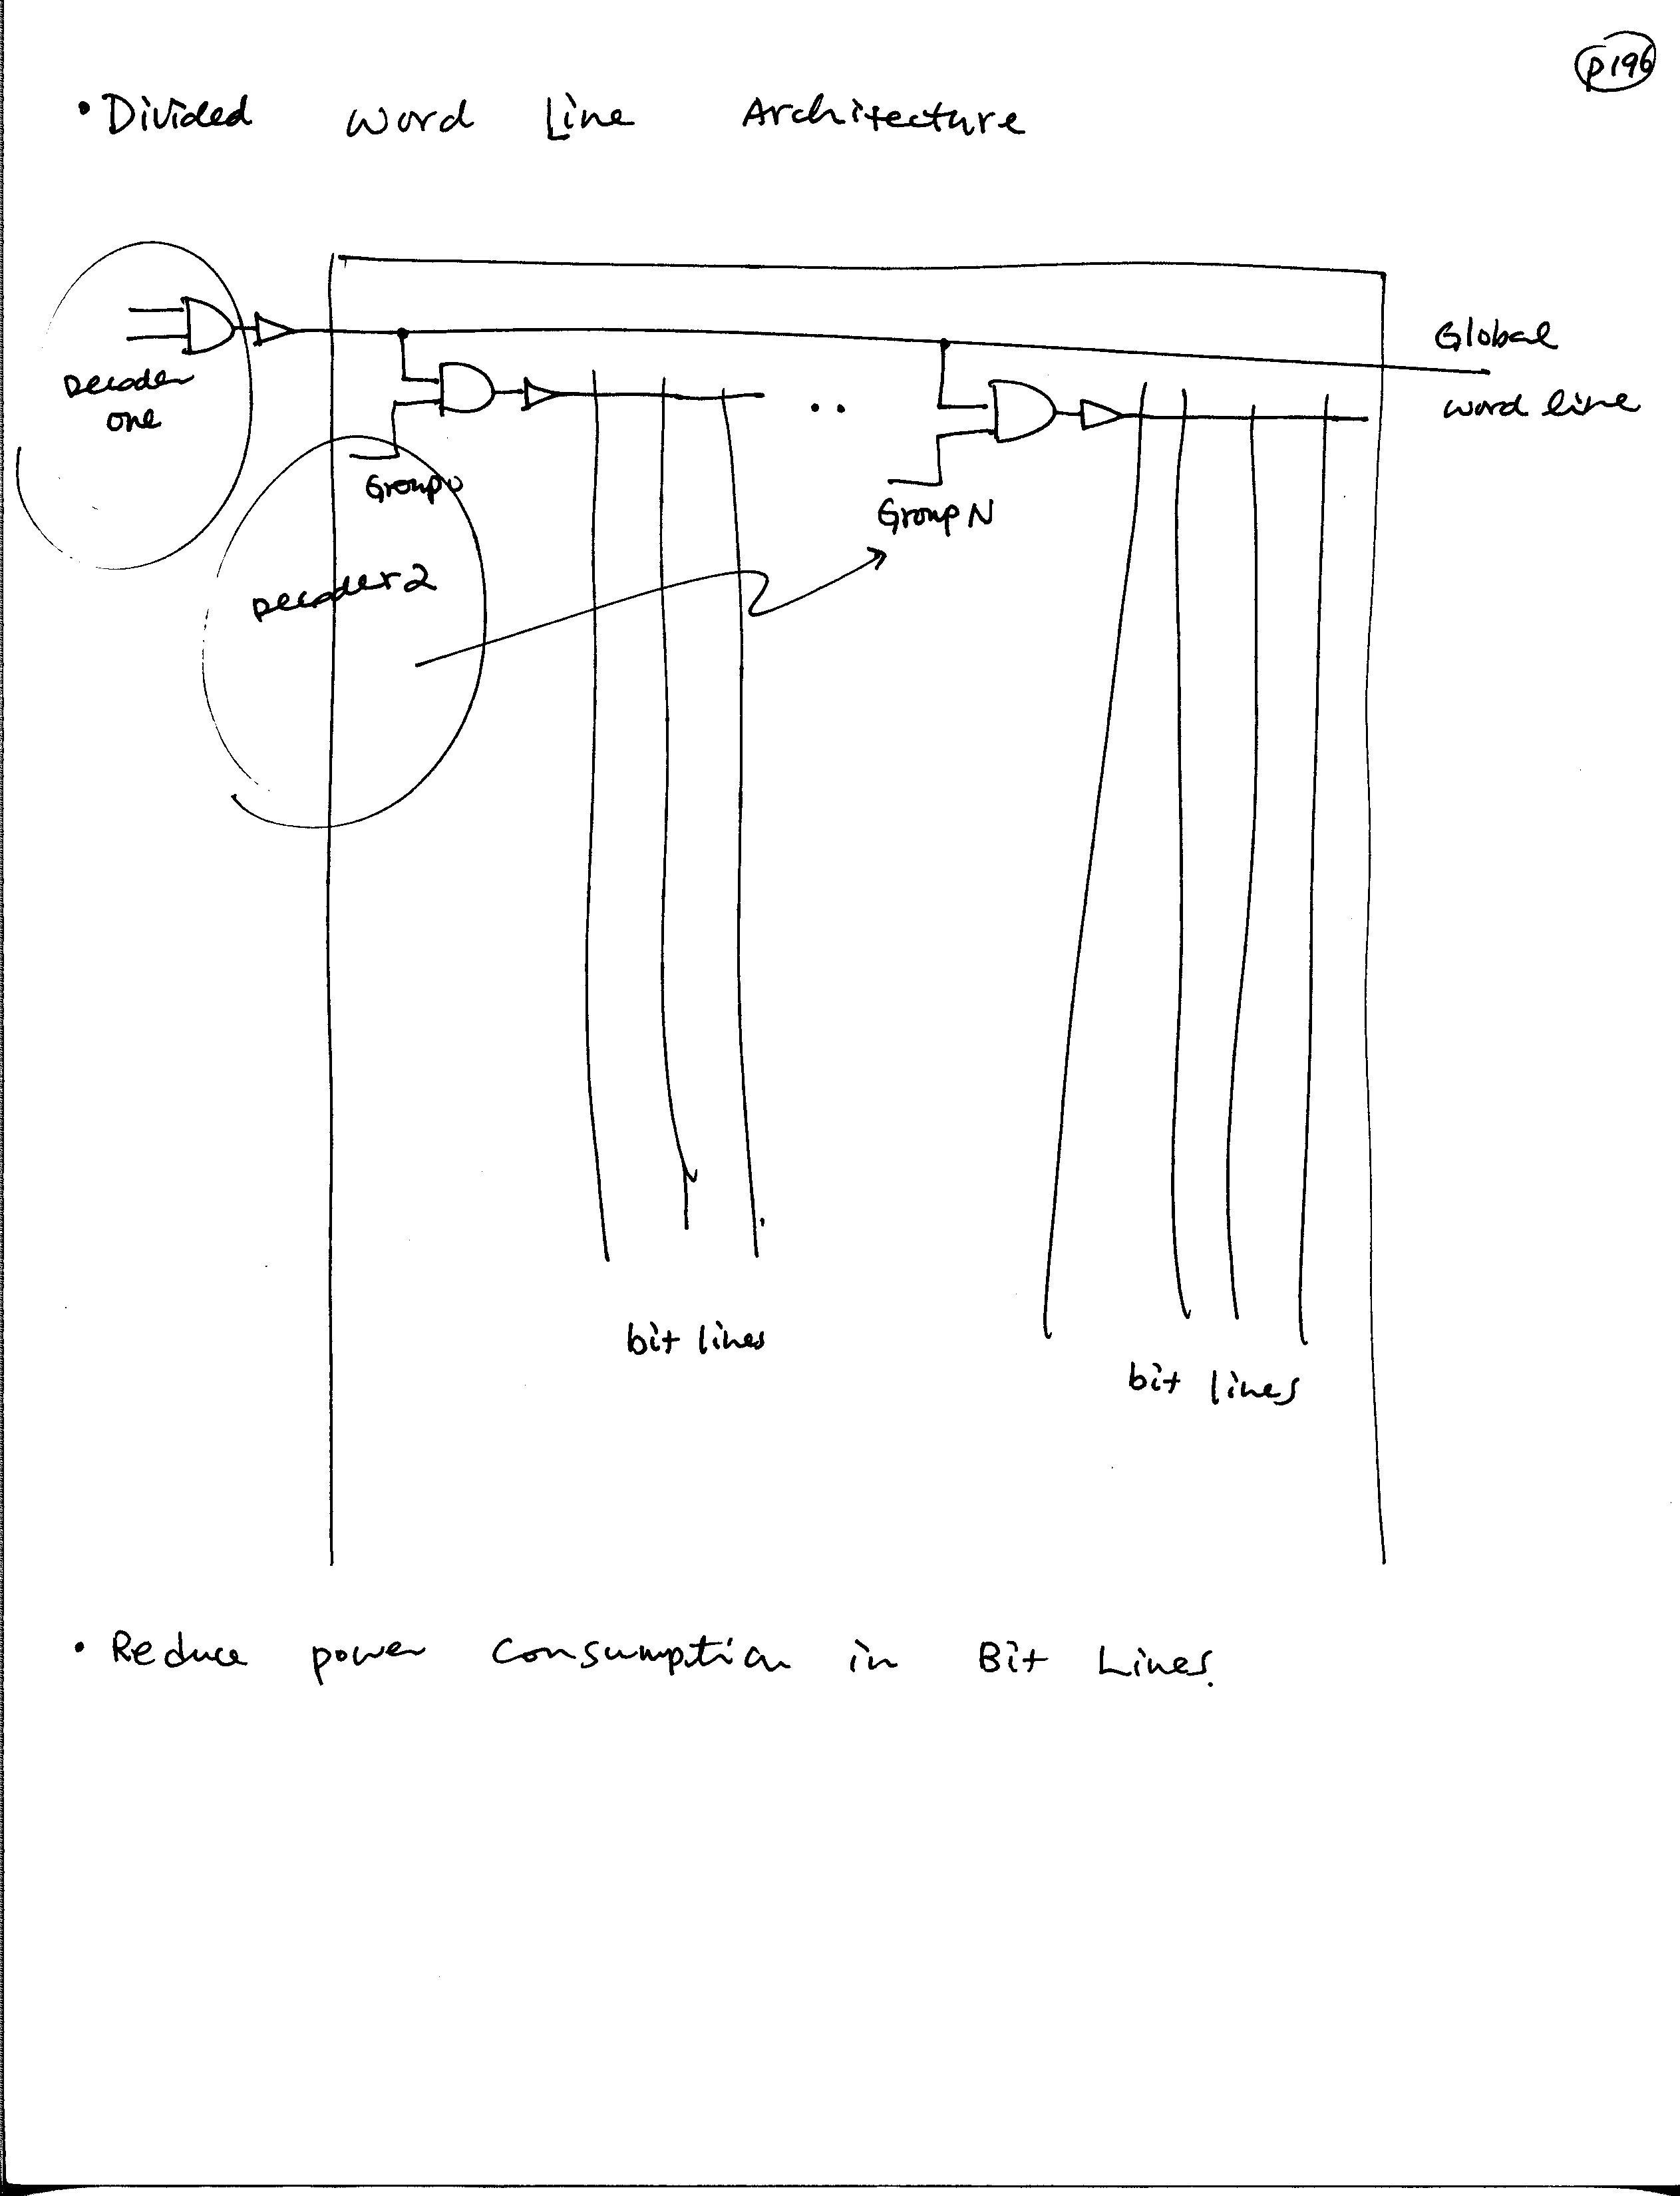 p196
• Divided Word Line Architecture
Global
word line
Decoder
one
Group 0
Group N
Decoder 2
bit lines
bit lines
• Reduce power consumption in Bit Lines.